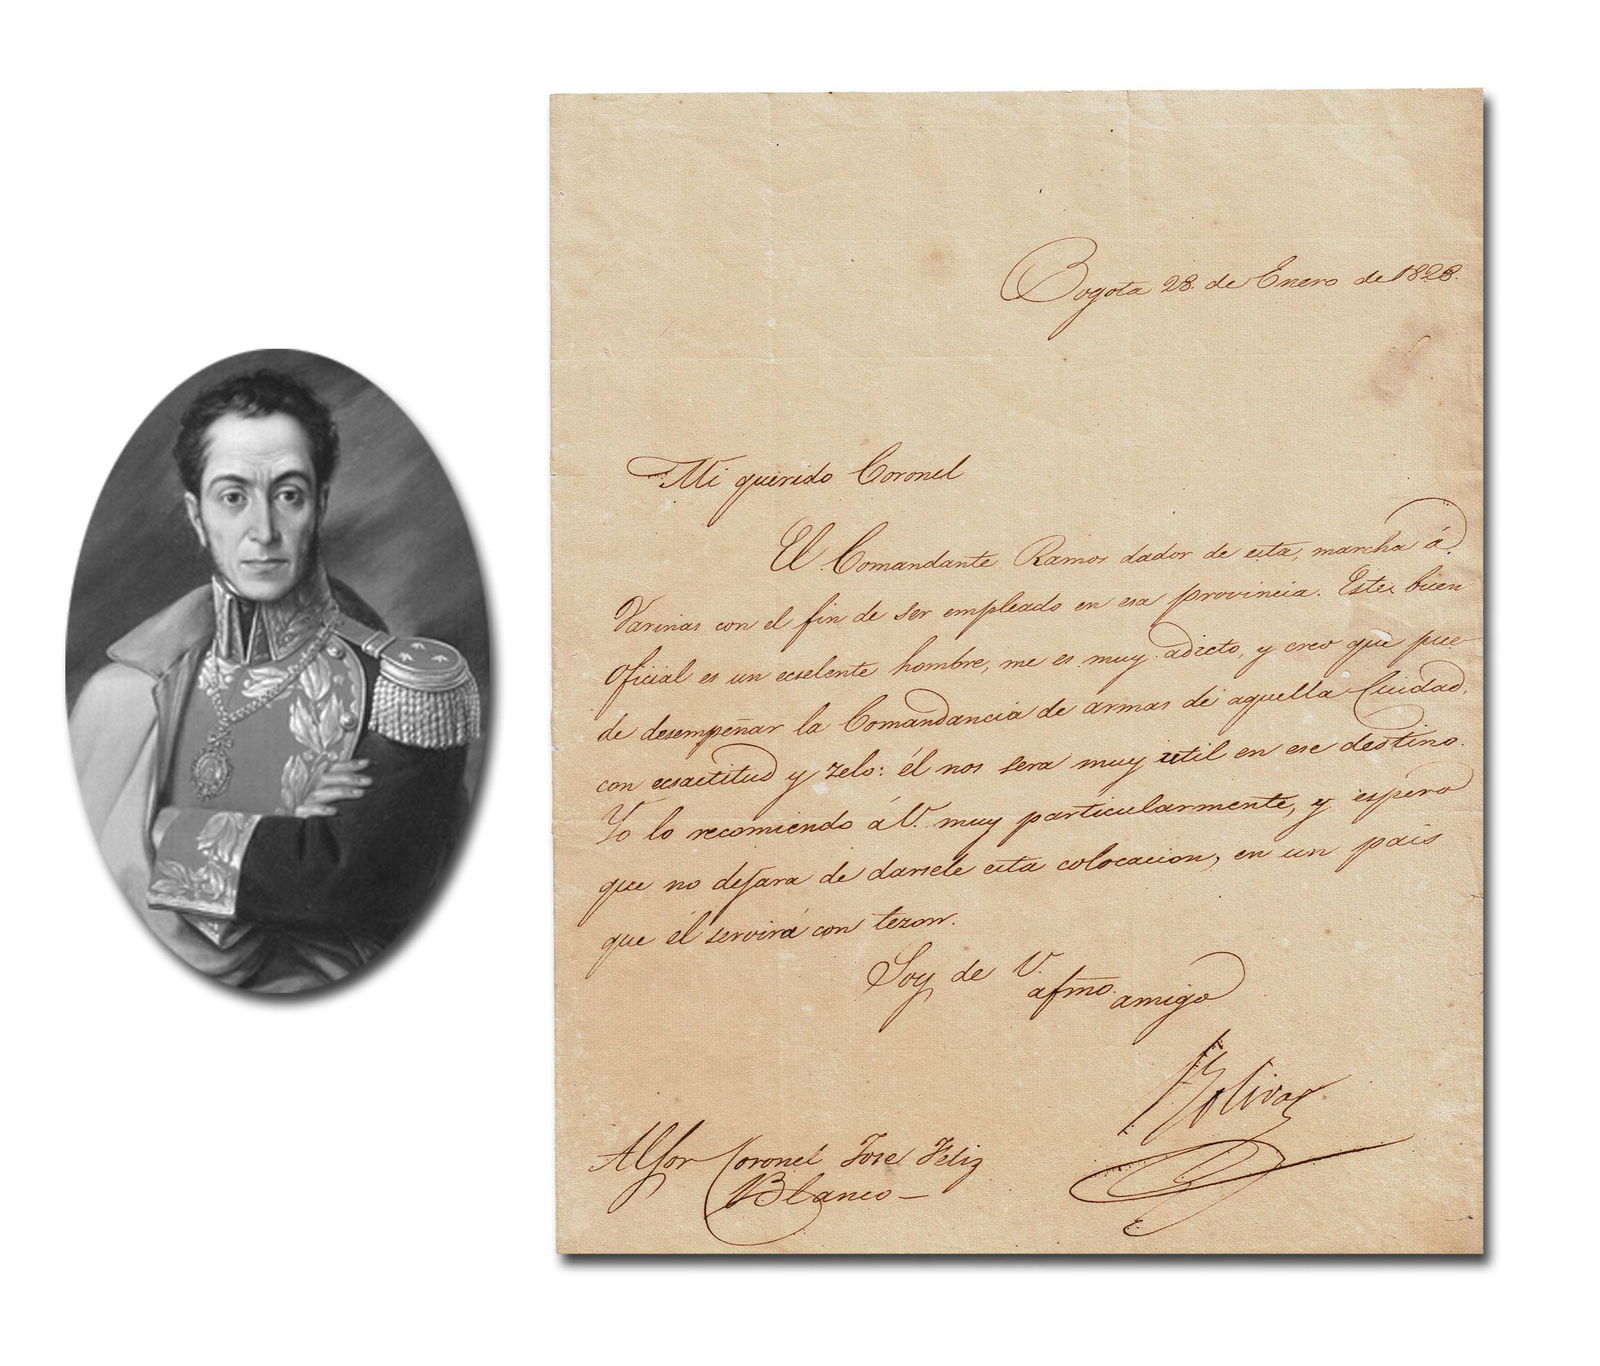 Bogotá 28. de Enero de 1828.
Mi querido Coronel
El Comandante Ramos dador de esta, marcha á
Varinas con el fin de ser empleado en esa provincia. Este buen
Oficial es un ecselente hombre, me es muy adicto, y creo que pue-
de desempeñar la Comandancia de armas de aquella Ciudad,
con ecsactitud y zelo: él nos sera muy útil en ese destino.
Yo lo recomiendo á V. muy particularmente, y espero
que no dejara de darsele esta colocacion, en un pais
que él servirá con tezon.
Soy de V.
afmo. amigo
Bolivar
Al Sor Coronel Jose Feliz
Blanco —